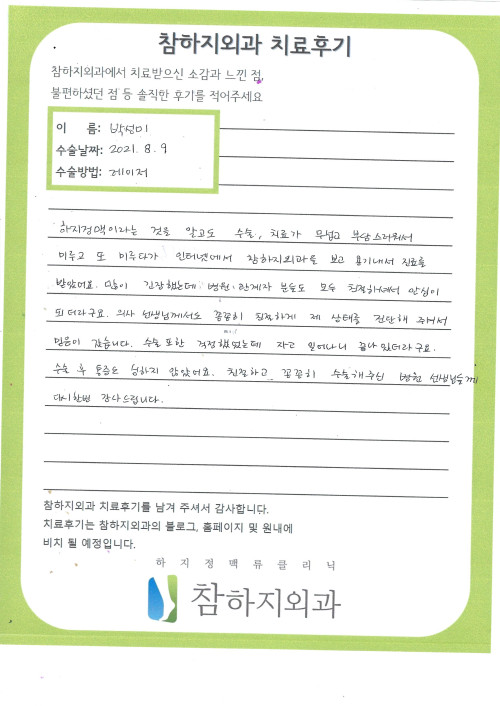 참하지외과 치료후기
참하지외과에서 치료받으신 소감과 느낀 점,
불편하셨던 점 등 솔직한 후기를 적어주세요
이 름: 박선미
수술날짜: 2021. 8. 9
수술방법: 레이저
하지정맥이라는 것을 알고도 수술, 치료가 무섭고 부담스러워서
미루고 또 미루다가 인터넷에서 참하지외과를 보고 용기내서 진료를
받았어요. 많이 긴장했는데 병원 관계자 분들도 모두 친절하셔서 안심이
되더라구요. 의사 선생님께서도 꼼꼼히 친절하게 제 상태를 진단해 주셔서
믿음이 갔습니다. 수술 또한 걱정했었는데 자고 일어나니 끝나 있더라구요.
수술 후 통증도 심하지 않았어요. 친절하고 꼼꼼히 수술해주신 병원 선생님들께
다시한번 감사드립니다.
참하지외과 치료후기를 남겨 주셔서 감사합니다.
치료후기는 참하지외과의 블로그, 홈페이지 및 원내에
비치 될 예정입니다.
하지정맥류클리닉
참하지외과